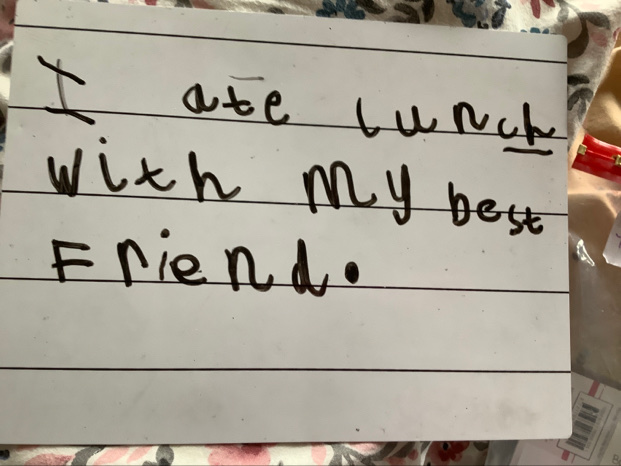 I ate lunch
with My best
Friend.